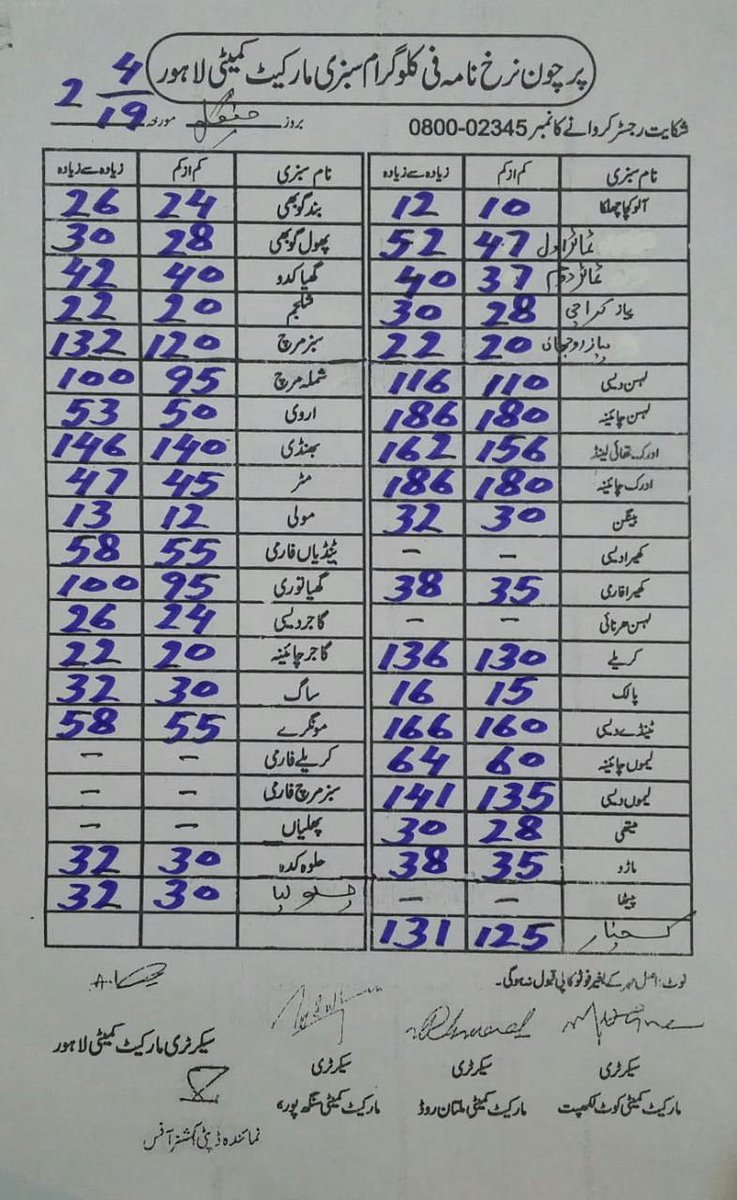 پرچون نرخ نامہ فی کلوگرام سبزی مارکیٹ کمیٹی لاہور
شکایت رجسٹر کروانے کا نمبر 0800-02345 بروز منگل مورخہ 2 4 19
نام سبزی کم از کم زیادہ سے زیادہ نام سبزی کم از کم زیادہ سے زیادہ
آلو کچا چھلکا 10 12 بند گوبھی 24 26
ٹماٹر اول 47 52 پھول گوبھی 28 30
ٹماٹر دوئم 37 40 گھیا کدو 40 42
پیاز کراچی 28 30 شلجم 20 22
پیاز 20 22 سبز مرچ 120 132
لہسن دیسی 110 116 شملہ مرچ 95 100
لہسن چائینہ 180 186 اروی 50 53
ادرک تھائی لینڈ 156 162 بھنڈی 140 146
ادرک چائینہ 180 186 مٹر 45 47
بینگن 30 32 مولی 12 13
کھیرا دیسی – – ٹینڈیاں فارمی 55 58
کھیرا فارمی 35 38 گھیا توری 95 100
لہسن ھرنائی – – گاجر دیسی 24 26
کریلے 130 136 گاجر چائینہ 20 22
پالک 15 16 ساگ 30 32
ٹینڈے دیسی 160 166 مونگرے 55 58
لیموں چائینہ 60 64 کریلے فارمی – –
لیموں دیسی 135 141 سبز مرچ فارمی – –
میتھی 28 30 پھلیاں – –
ماڑو 35 38 حلوہ کدہ 30 32
پیٹھا – – 30 32
کچنار 125 131
نوٹ: اصل مہر کے بغیر فوٹو کاپی قبول نہ ہوگی۔
سیکرٹری سیکرٹری سیکرٹری سیکرٹری مارکیٹ کمیٹی لاہور
مارکیٹ کمیٹی کوٹ لکھپت مارکیٹ کمیٹی ملتان روڈ مارکیٹ کمیٹی سنگھ پورہ
نمائندہ ڈپٹی کمشنر آفس